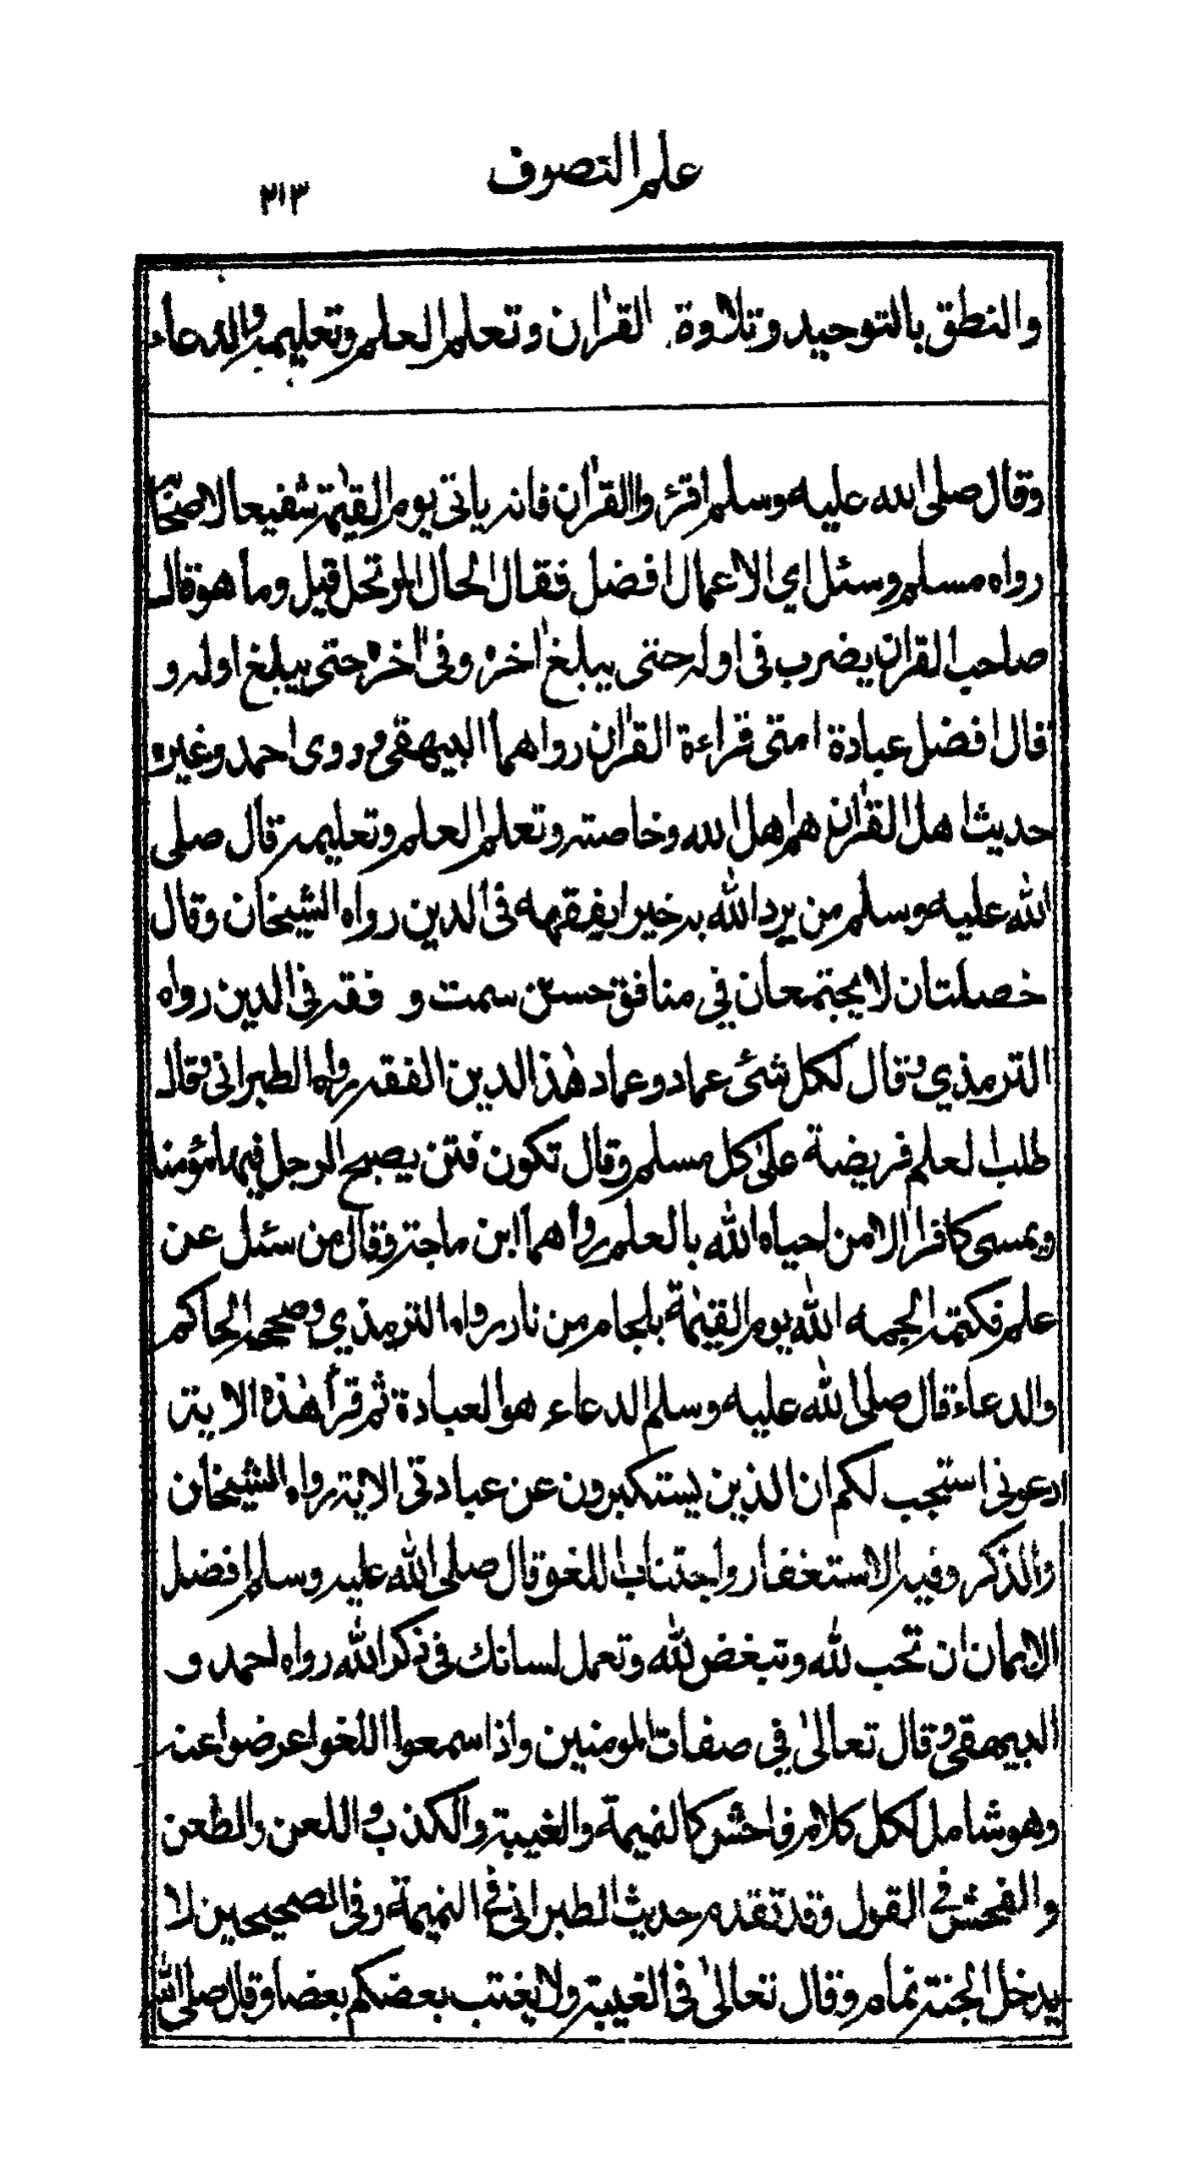 علم التصوف
٢١٣
والنطق بالتوحيد وتلاوة القرٰان وتعلم العلم وتعليمه والدعاء
وقال صلى الله عليه وسلم اقرؤوا القرٰان فانه ياتى يوم القيٰمة شفيعا لاصحابه
رواه مسلم وسئل اي الاعمال افضل فقال الحال المرتحل قيل وما هو قال
صاحب القرٰان يضرب فى اوله حتى يبلغ اٰخره وفى اٰخره حتى يبلغ اوله و
قال افضل عبادة امتى قراءة القرٰان رواهما البيهقى وروى احمد وغيره
حديث اهل القرٰان هم اهل الله وخاصته وتعلم العلم وتعليمه قال صلى
الله عليه وسلم من يرد الله به خيرا يفقهه فى الدين رواه الشيخان وقال
خصلتان لا يجتمعان في منافق حسن سمت و فقه فى الدين رواه
الترمذي وقال لكل شئ عماد وعماد هٰذا الدين الفقه رواه الطبرانى وقال
طلب العلم فريضة علىٰ كل مسلم وقال تكون فتن يصبح الرجل فيها مؤمنا
ويمسى كافرا الا من احياه الله بالعلم رواهما ابن ماجة وقال من سئل عن
علم فكتمه الجمه الله يوم القيٰمة بلجام من نار رواه الترمذي وصححه الحاكم
والدعاء قال صلى الله عليه وسلم الدعاء هو العبادة ثم قرأ هٰذه الاية
ادعونى استجب لكم ان الذين يستكبرون عن عبادتى الاية رواه الشيخان
والذكر وفيه الاستغفار واجتناب اللغو قال صلى الله عليه وسلم افضل
الايمان ان تحب لله وتبغض لله وتعمل لسانك فى ذكر الله رواه احمد و
البيهقى وقال تعالىٰ في صفات المومنين واذا سمعوا اللغو اعرضوا عنه
وهو شامل لكل كلام فاحش كالنميمة والغيبة والكذب واللعن والطعن
والفحش في القول وقد تقدم حديث الطبرانى في النميمة وفى الصحيحين لا
يدخل الجنة نمام وقال تعالىٰ فى الغيبة ولا يغتب بعضكم بعضا وقال صلى الله